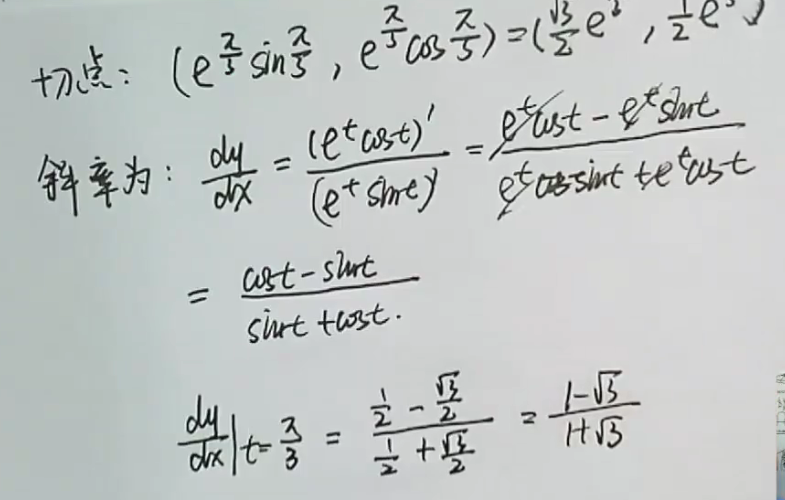 切点: (e^{π/3} sin π/3, e^{π/3} cos π/3) = (√3/2 e, 1/2 e
斜率为: dy/dx = (e^t cost)'/(e^t sint)' = (e^t cost - e^t sint)/(e^t sint + e^t cost)
= (cost - sint)/(sint + cost).
dy/dx | t=π/3 = (1/2 - √3/2)/(1/2 + √3/2) = (1-√3)/(1+√3)